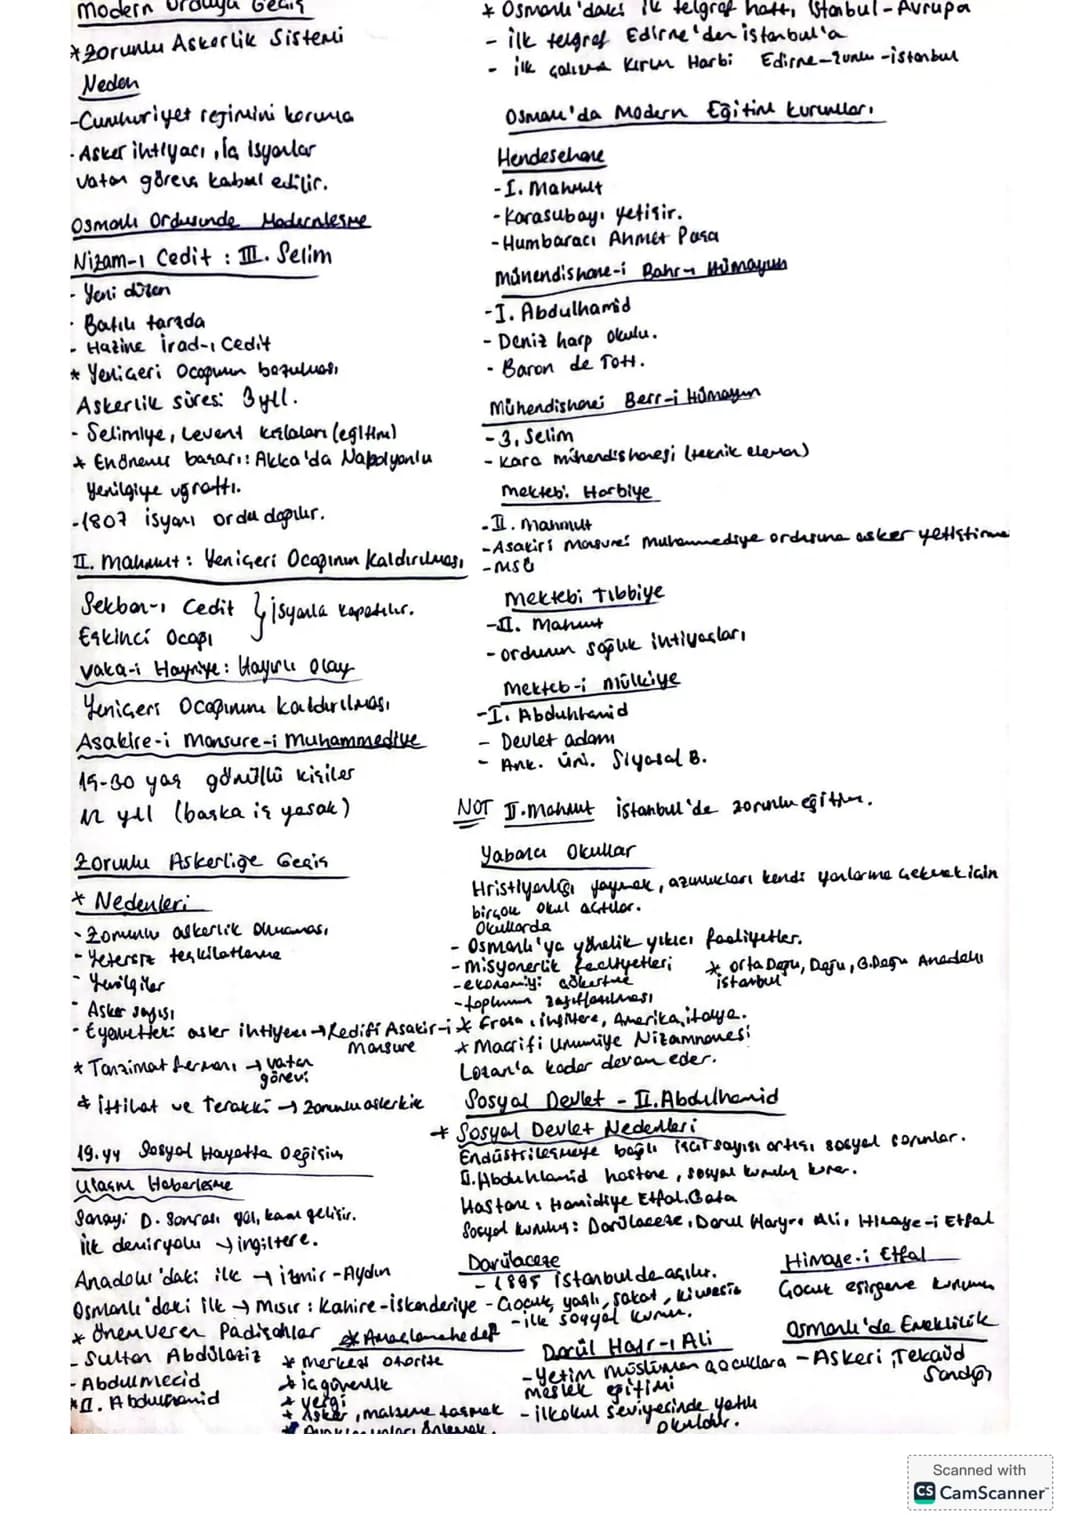 Modern Orduya Geçiş
* Zorunlu Askerlik Sistemi
Neden
- Cumhuriyet rejimini koruma
- Asker ihtiyacı, iç isyanlar
vatan görevi kabul edilir.
Osmanlı Ordusunda Modernleşme
Nizam-ı Cedit : III. Selim
- Yeni düzen
- Batılı tarzda
- Hazine İrad-ı Cedit
* Yeniçeri Ocağının bozulması
Askerlik süresi: 3 yıl.
- Selimiye, Levent kışlaları (eğitim)
* En önemli başarı: Akka'da Napolyonlu
yenilgiye uğrattı.
- 1807 isyanı ordu dağılır.
II. Mahmut : Yeniçeri Ocağının Kaldırılması
Sekban-ı Cedit } isyanla kapatılır.
Eşkinci Ocağı
Vaka-i Hayriye : Hayırlı Olay
Yeniçeri Ocağının kaldırılması
Asakire-i Mansure-i Muhammediye
15-30 yaş gönüllü kişiler
12 yıl (başka iş yasak)
Zorunlu Askerliğe Geçiş
* Nedenleri
- Zorunlu askerlik olmaması
- Yetersiz teşkilatlanma
- Yenilgiler
- Asker sayısı
- Eyaletteki asker ihtiyacı → Redifi Asakir-i
Mansure
* Tanzimat Fermanı → vatan
görevi
* İttihat ve Terakki → zorunlu askerlik
19.yy Sosyal Hayatta Değişim
Ulaşım Haberleşme
Sanayi D. Sonrası yol, kara gelişir.
İlk demiryolu → İngiltere.
Anadolu'daki ilk → İzmir - Aydın
Osmanlı'daki ilk → Mısır : Kahire - İskenderiye
* Önem Veren Padişahlar
- Sultan Abdülaziz
- Abdulmecid
* II. Abdulhamid
* Amaçlanan hedef
* merkezi otorite
* iç güvenlik
* vergi
* Asker, malzeme taşımak
* önlemek.
* Osmanlı'daki ilk telgraf hattı, İstanbul - Avrupa
- ilk telgraf Edirne'den İstanbul'a
- ilk çalışma Kırım Harbi Edirne - Şumlu - İstanbul
Osman'da Modern Eğitim kurumları
Hendesehane
- I. Mahmut
- Kara subayı yetişir.
- Humbaracı Ahmet Paşa
Mühendishane-i Bahr-ı Hümayun
- I. Abdulhamid
- Deniz harp okulu.
- Baron de Tott.
Mühendishanei Berr-i Hümayun
- 3. Selim
- Kara mühendishanesi (teknik eleman)
Mektebi Harbiye
- II. Mahmut
- Asakiri Mansurei Muhammediye ordusuna asker yetiştirme
- MSÜ
Mektebi Tıbbiye
- II. Mahmut
- ordunun sağlık ihtiyaçları
Mekteb-i Mülkiye
- I. Abdulhamid
- Devlet adamı
- Ank. Üni. Siyasal B.
NOT II. Mahmut İstanbul'de zorunlu eğitim.
Yabancı Okullar
Hristiyanlığı yaymak, azınlıkları kendi yanlarına çekmek için
birçok okul açtılar.
Okullarda
- Osmanlı'ya yönelik yıkıcı faaliyetler.
- Misyonerlik faaliyetleri
- ekonomiyi çökertme
- toplumun zayıflatılması
* Orta Doğu, Doğu, G.Doğu Anadolu
İstanbul
* Fransa, İngiltere, Amerika, İtalya.
* Maarifi Umumiye Nizamnamesi
Lozan'a kadar devam eder.
Sosyal Devlet - II. Abdulhamid
* Sosyal Devlet Nedenleri
Endüstrileşmeye bağlı işçi sayısı artışı sosyal sorunlar.
II. Abdulhamid hastane, sosyal kuruluş kurar.
Hastane : Hamidiye Etfal, Gata
Sosyal kuruluş : Darülaceze, Darul Hayr-ı Ali, Himaye-i Etfal
Darülaceze
- 1895 İstanbul'de açılır.
- Çocuk, yaşlı, sakat, kimsesiz
- ilk sosyal kurum.
Darül Hayr-ı Ali
- Yetim müslüman çocuklara
meslek eğitimi
- ilkokul seviyesinde yatılı
okuldur.
Himaye-i Etfal
Çocuk esirgeme kurumu
Osmanlı'de Emeklilik
- Askeri Tekaüd
Sandığı
Scanned with
CS CamScanner